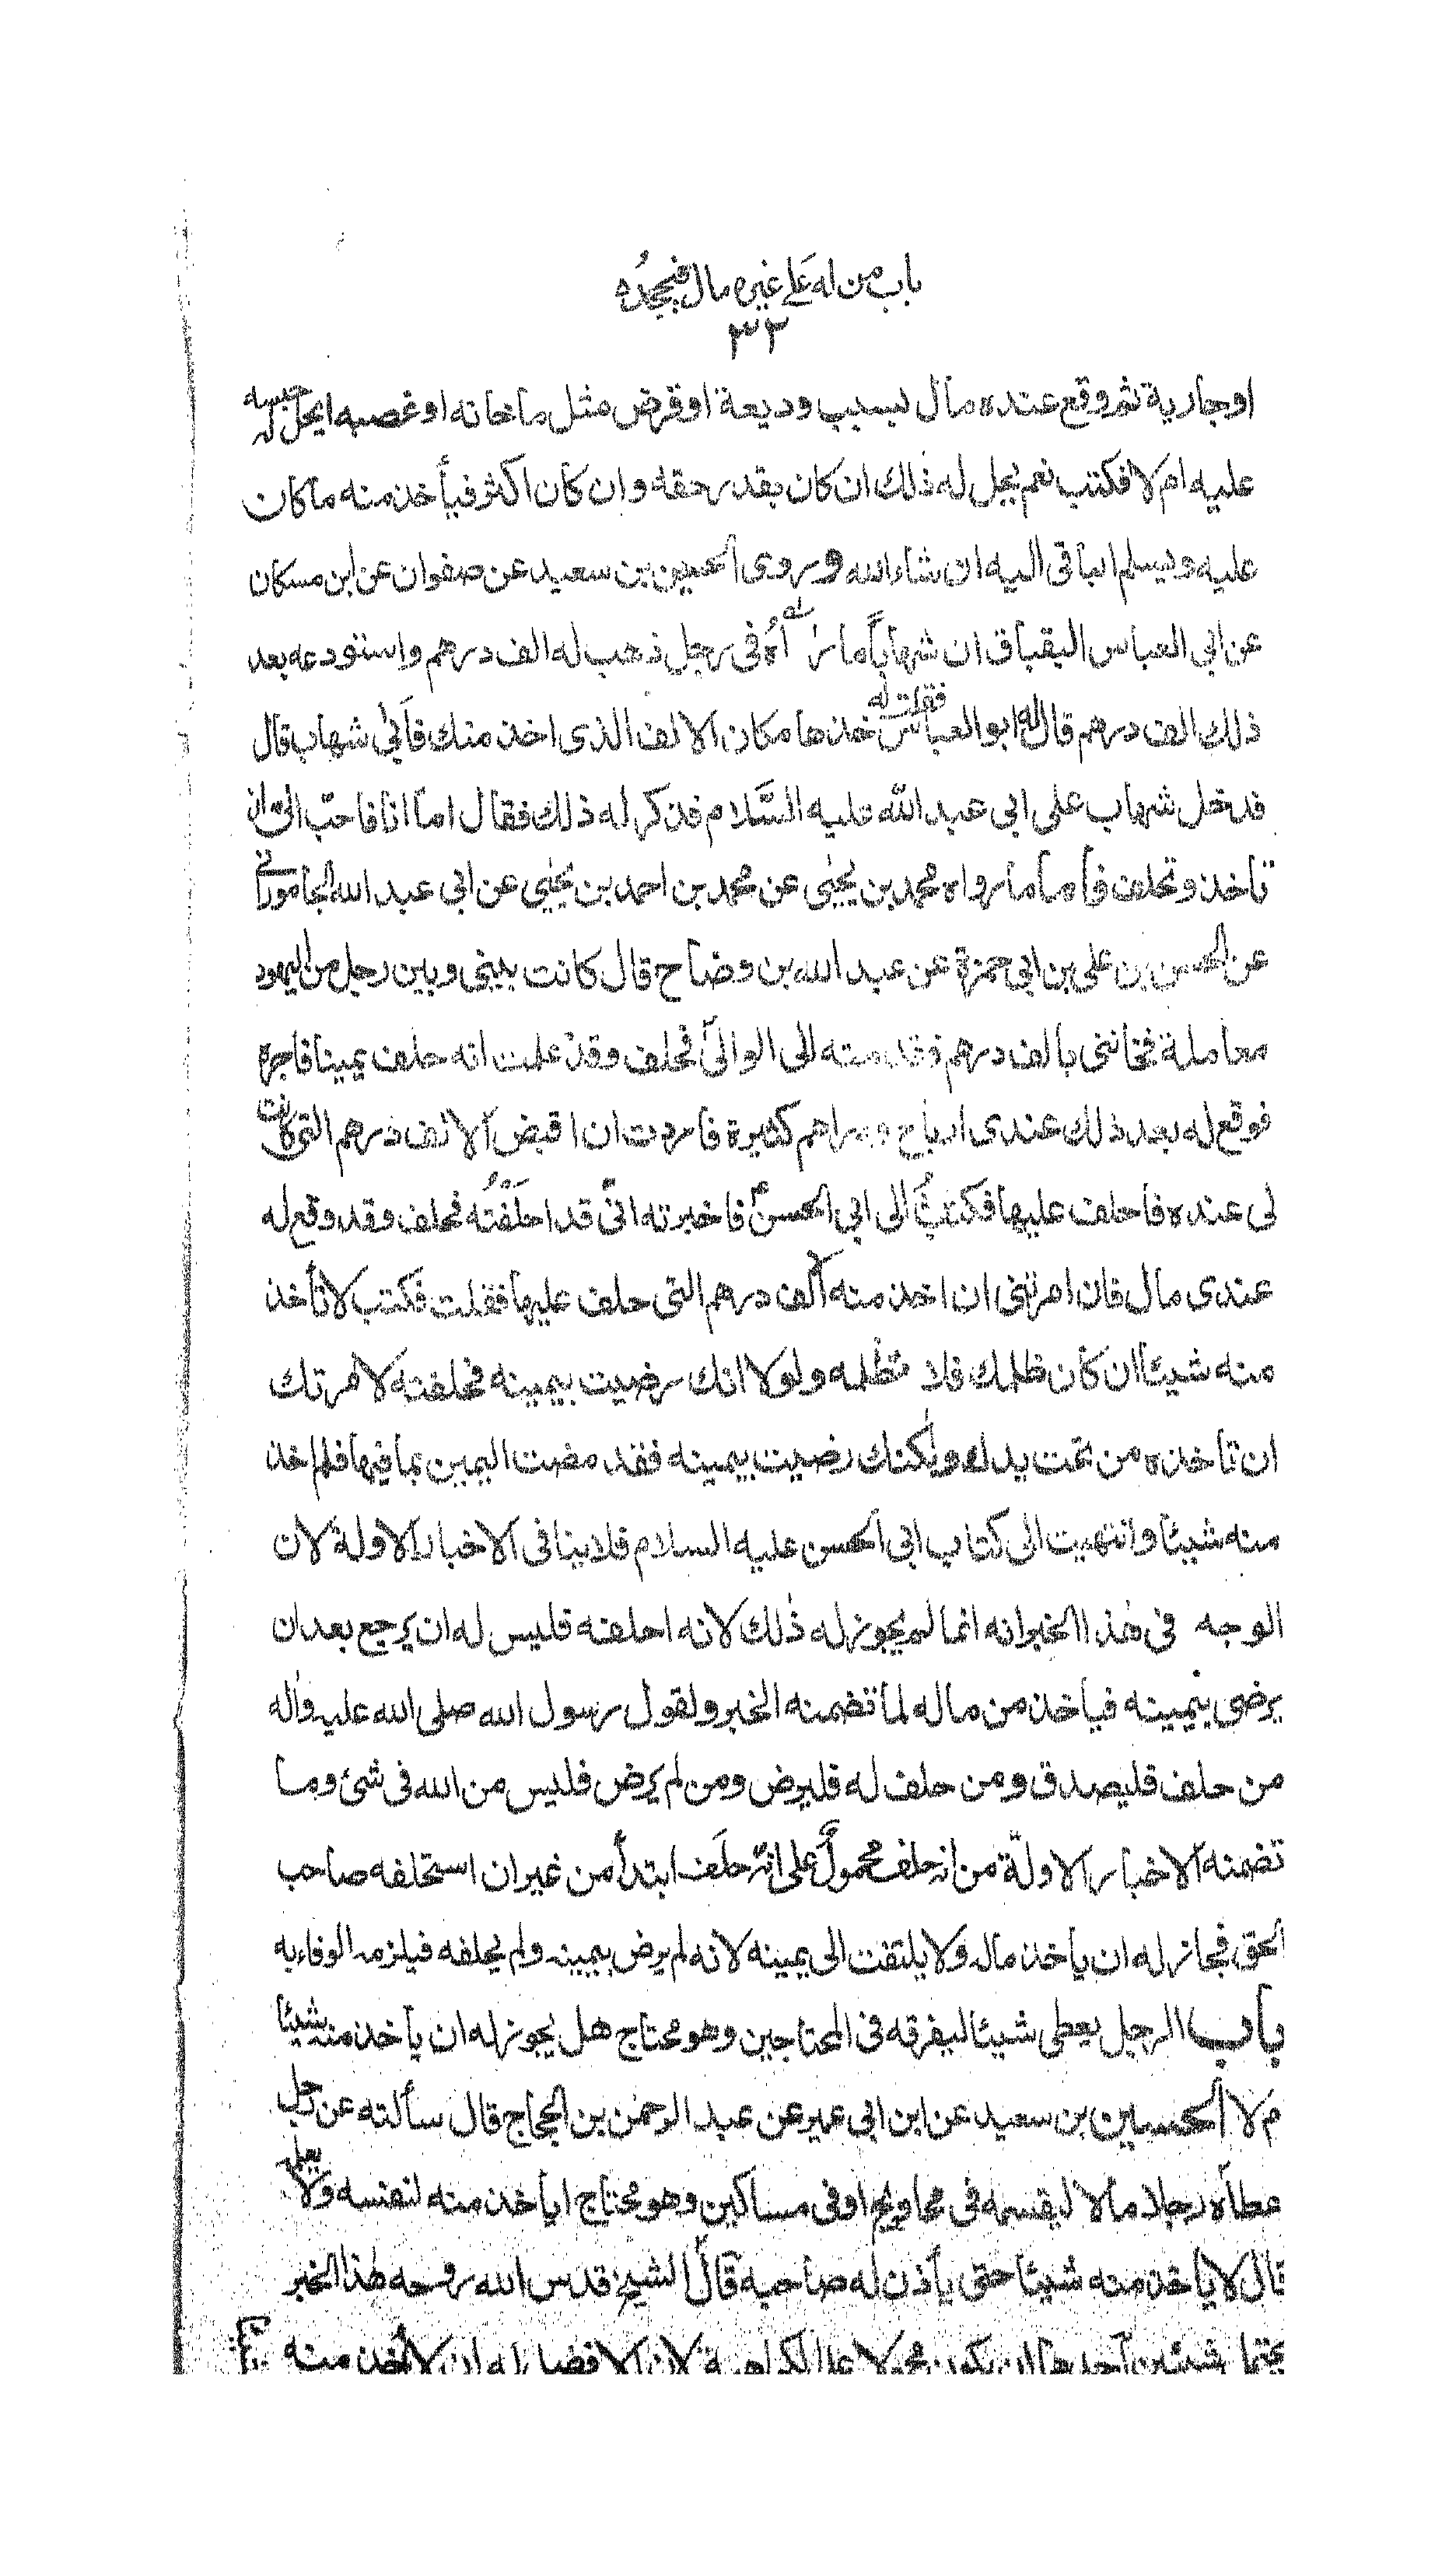 باب من له على غيره مال فيجحده
٣٢
او جارية ثم وقع عنده مال بسبب وديعة او قرض مثل ما خانه او غصبه ايحل له حبسه
عليه ام لا فكتب نعم يحل له ذلك ان كان بقدر حقه وان كان اكثر فيأخذ منه ما كان
عليه ويسلم الباقى اليه ان شاء الله وروى الحسين بن سعيد عن صفوان عن ابن مسكان
عن ابى العباس البقباق ان شهابا ماراه فى رجل ذهب له الف درهم واستودعه بعد
ذلك الف درهم قال له ابو العباس فقلت له خذها مكان الالف الذى اخذ منك فابى شهاب قال
فدخل شهاب على ابى عبد الله عليه السلام فذكر له ذلك فقال اما انا فاحب الى ان
تاخذ وتحلف فأما ما رواه محمد بن يحيى عن محمد بن احمد بن يحيى عن ابى عبد الله الجامورانى
عن الحسن بن على بن ابى حمزة عن عبد الله بن وضاح قال كانت بينى وبين رجل من اليهود
معاملة فخاننى بالف درهم فقدمته الى الوالى فحلف وقد علمت انه حلف يمينا فاجرة
فوقع له بعد ذلك عندى ارباح ودراهم كثيرة فاردت ان اقبض الالف درهم التى كانت
لى عنده فاحلف عليها فكتبت الى ابى الحسن ع فاخبرته انى قد احلفته فحلف وقد وقع له
عندى مال فان امرتنى ان اخذ منه الالف درهم التى حلف عليها فقلت فكتب لا تأخذ
منه شيئا ان كان ظلمك فلا تظلمه ولولا انك رضيت بيمينه فحلفته لامرتك
ان تاخذه من تحت يدك ولكنك رضيت بيمينه فقد مضت اليمين بما فيها فلم اخذ
منه شيئا وانتهيت الى كتاب ابى الحسن عليه السلام فلا ينافى الاخبار الاولة لان
الوجه فى هذا الخبر انه انما لم يجوز له ذلك لانه احلفه فليس له ان يرجع بعد ان
يرضى بيمينه فياخذ من ماله لما تضمنه الخبر ولقول رسول الله صلى الله عليه واله
من حلف فليصدق ومن حلف له فليرض ومن لم يرض فليس من الله فى شئ وما
تضمنه الاخبار الاولة من انه حلف محمول على انه حلف ابتدأ من غير ان استحلفه صاحب
الحق فجاز له ان يأخذ ماله ولا يلتفت الى يمينه لانه لم يرض بيمينه ولم يحلفه فيلزمه الوفاء به
باب الرجل يعطى شيئا ليفرقه فى المحتاجين وهو محتاج هل يجوز له ان يأخذ منه شيئا
م لا الحسين بن سعيد عن ابن ابى عمير عن عبد الرحمن بن الحجاج قال سألته عن رجل
عطاه رجلا مالا ليقسمه فى محاويج او فى مساكين وهو محتاج ايأخذ منه لنفسه ولا يعلمه
قال لا ياخذ منه شيئا حتى يأذن له صاحبه قال الشيخ قدس الله روحه هذا الخبر
يحتمل شيئين احدهما ان يكون محمولا على الكراهية لان الافضل له ان لا يأخذ منه